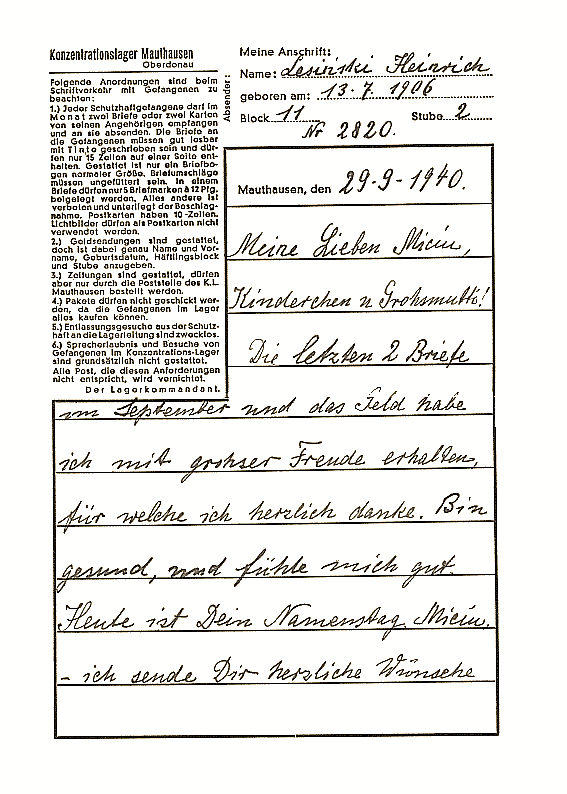 Konzentrationslager Mauthausen
Oberdonau
Folgende Anordnungen sind beim
Schriftverkehr mit Gefangenen zu
beachten:
1.) Jeder Schutzhaftgefangene darf im
Monat zwei Briefe oder zwei Karten
von seinen Angehörigen empfangen
und an sie absenden. Die Briefe an
die Gefangenen müssen gut lesbar
mit Tinte geschrieben sein und dür-
fen nur 15 Zeilen auf einer Seite ent-
halten. Gestattet ist nur ein Briefbo-
gen normaler Größe. Briefumschläge
müssen ungefüttert sein. In einem
Briefe dürfen nur 5 Briefmarken à 12 Pfg.
beigelegt werden. Alles andere ist
verboten und unterliegt der Beschlag-
nahme. Postkarten haben 10 Zeilen.
Lichtbilder dürfen als Postkarten nicht
verwendet werden.
2.) Geldsendungen sind gestattet,
doch ist dabei genau Name und Vor-
name, Geburtsdatum, Häftlingsblock
und Stube anzugeben.
3.) Zeitungen sind gestattet, dürfen
aber nur durch die Poststelle des K.L.
Mauthausen bestellt werden.
4.) Pakete dürfen nicht geschickt wer-
den, da die Gefangenen im Lager
alles kaufen können.
5.) Entlassungsgesuche aus der Schutz-
haft an die Lagerleitung sind zwecklos.
6.) Sprecherlaubnis und Besuche von
Gefangenen im Konzentrations-Lager
sind grundsätzlich nicht gestattet.
Alle Post, die diesen Anforderungen
nicht entspricht, wird vernichtet.
Der Lagerkommandant.
Absender:
Meine Anschrift:
Name: Lesiński Heinrich
geboren am: 13.7.1906
Block 11 Stube 2
Nr 2820.
Mauthausen, den 29-9-1940.
Meine Lieben Miciu,
Kinderchen u Grohsmutti!
Die letzten 2 Briefe
im September und das Geld habe
ich mit grohser Freude erhalten,
für welche ich herzlich danke. Bin
gesund, und fühle mich gut.
Heute ist Dein Namenstag Miciu.
- ich sende Dir herzliche Wünsche